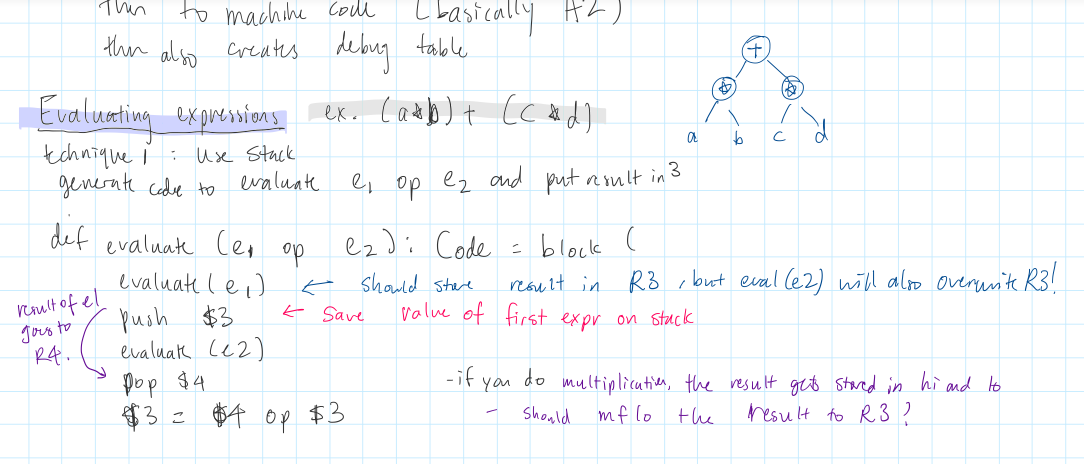 then to machine code (basically A2)
then also creates debug table
Evaluating expressions ex. (a*b) + (c*d)
+
* *
a b c d
technique 1 : use stack
generate code to evaluate e1 op e2 and put result in 3
def evaluate (e1 op e2): Code = block (
evaluate(e1) ← should store result in R3, but eval(e2) will also overwrite R3!
push $3 ← save value of first expr on stack
result of e1
goes to
R4.
evaluate (e2)
pop $4
$3 = $4 op $3
-if you do multiplication, the result gets stored in hi and lo
- should mflo the result to R3?